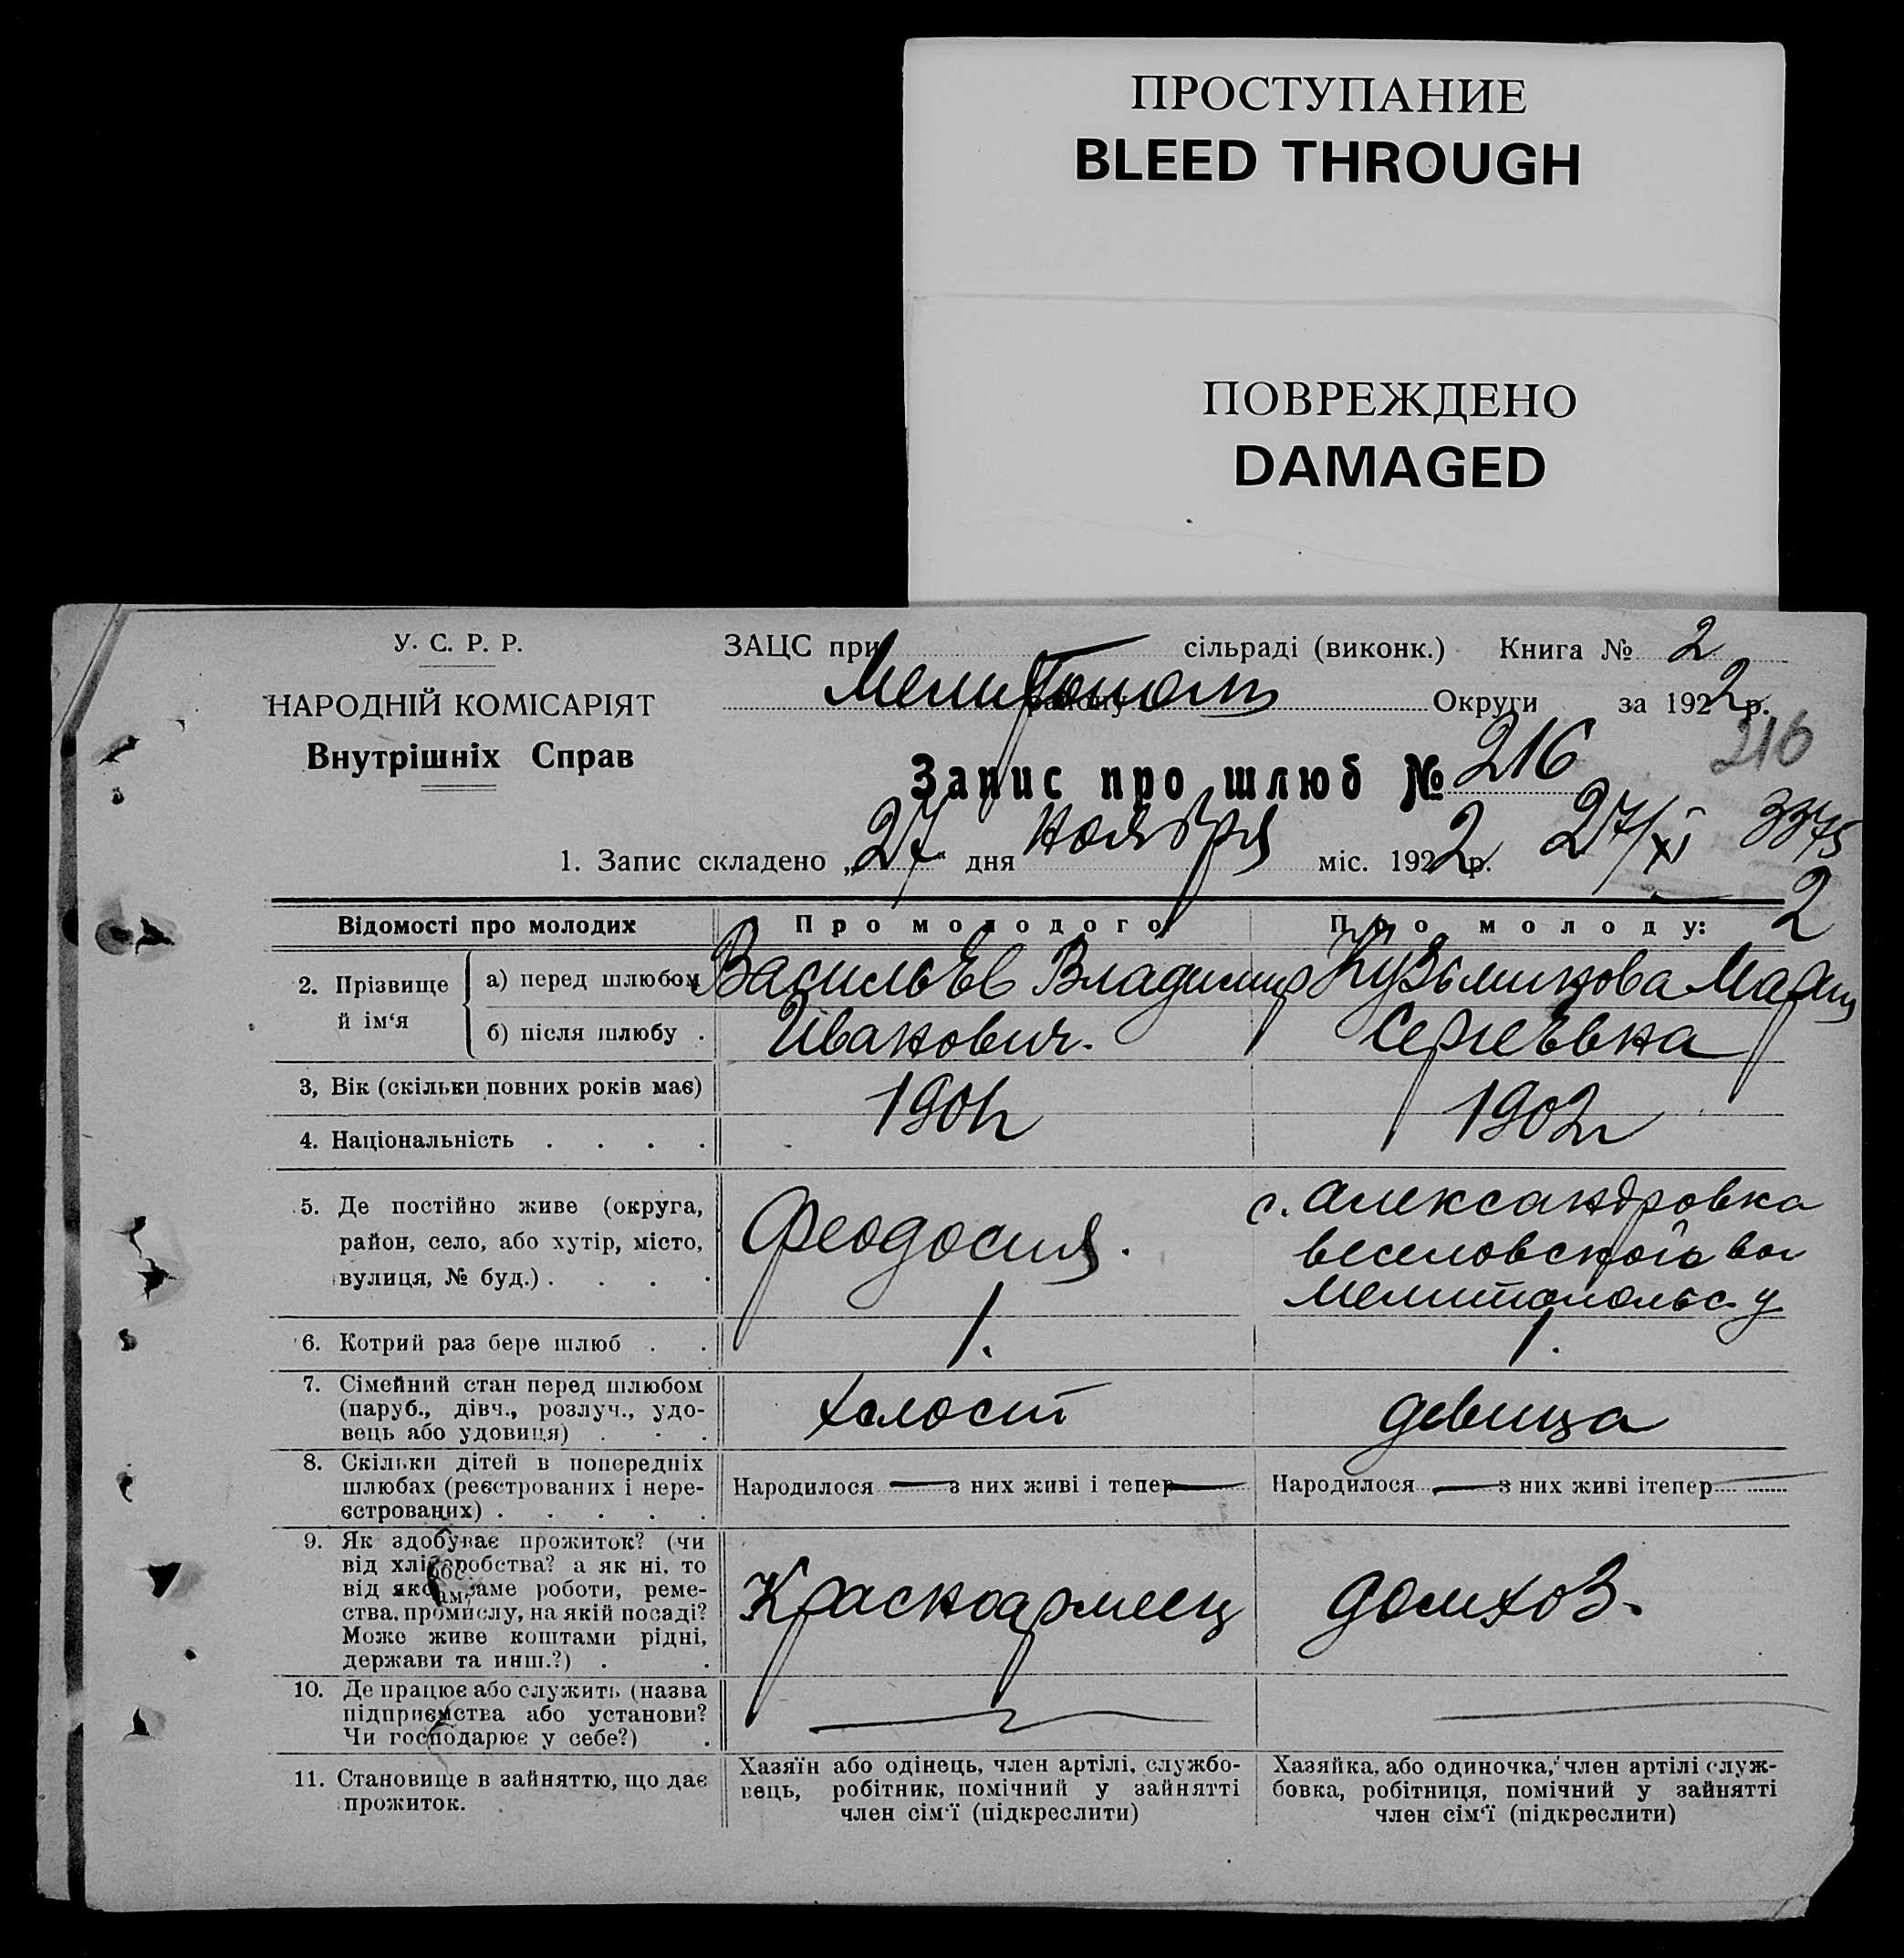 ПРОСТУПАНИЕ
BLEED THROUGH
ПОВРЕЖДЕНО
DAMAGED
У. С. Р. Р.
НАРОДНІЙ КОМІСАРІЯТ
Внутрішніх Справ
ЗАЦС при сільраді (виконк.) Книга № 2
Мелитополь Округи за 1922 р.
216
Запис про шлюб № 216
1. Запис складено „27" дня ноября міс. 1922 р. 27/XI 3375
2
Відомості про молодих
Про молодого
Про молоду:
2. Прізвище й ім'я
а) перед шлюбом
б) після шлюбу .
Васильев Владимир
Иванович.
Кузьминова Мария
Сергеевна
3, Вік (скільки повних років має)
4. Національність . . . .
1904
1902
5. Де постійно живе (округа,
район, село, або хутір, місто,
вулиця, № буд.) . . . .
Феодосия.
с. Александровка
Веселовской вол
Мелитопольс. у
6. Котрий раз бере шлюб . .
1.
1.
7. Сімейний стан перед шлюбом
(паруб., дівч., розлуч., удо-
вець або удовиця) . . .
холост
девица
8. Скільки дітей в попередніх
шлюбах (реєстрованих і нере-
єстрованих) . . . . .
Народилося — з них живі і тепер —
Народилося — з них живі ітепер —
9. Як здобуває прожиток? (чи
від хліборобства? а як ні, то
від якої саме роботи, реме-
ства, промислу, на якій посаді?
Може живе коштами рідні,
держави та инш.?) . .
Красноармеец
домхоз.
10. Де працює або служить (назва
підприємства або установи?
Чи господарює у себе?) .
11. Становище в зайняттю, що дає
прожиток.
Хазяїн або одінець, член артілі, службо-
вець, робітник, помічний у зайнятті
член сім'ї (підкреслити)
Хазяйка, або одиночка, член артілі служ-
бовка, робітниця, помічний у зайнятті
член сім'ї (підкреслити)